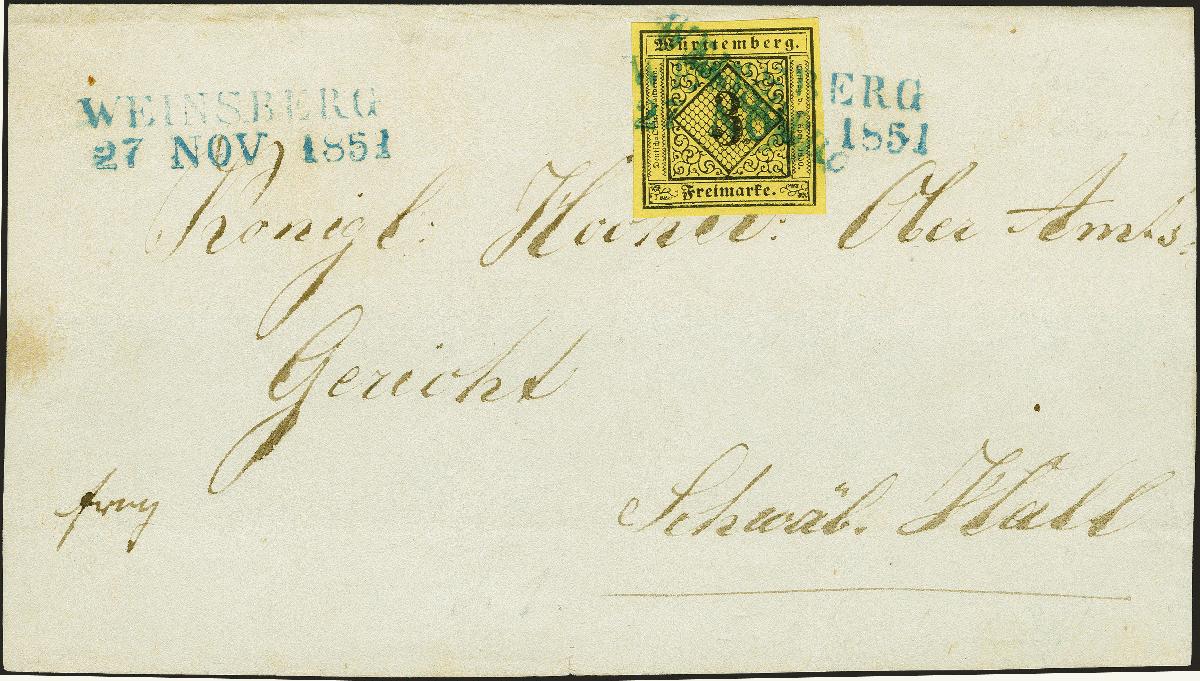 WEINSBERG
27 NOV 1851
Württemberg.
3
Freimarke.
ERG
1851
Königl: Ober Amts
Gericht
frey
Schwäb. Hall